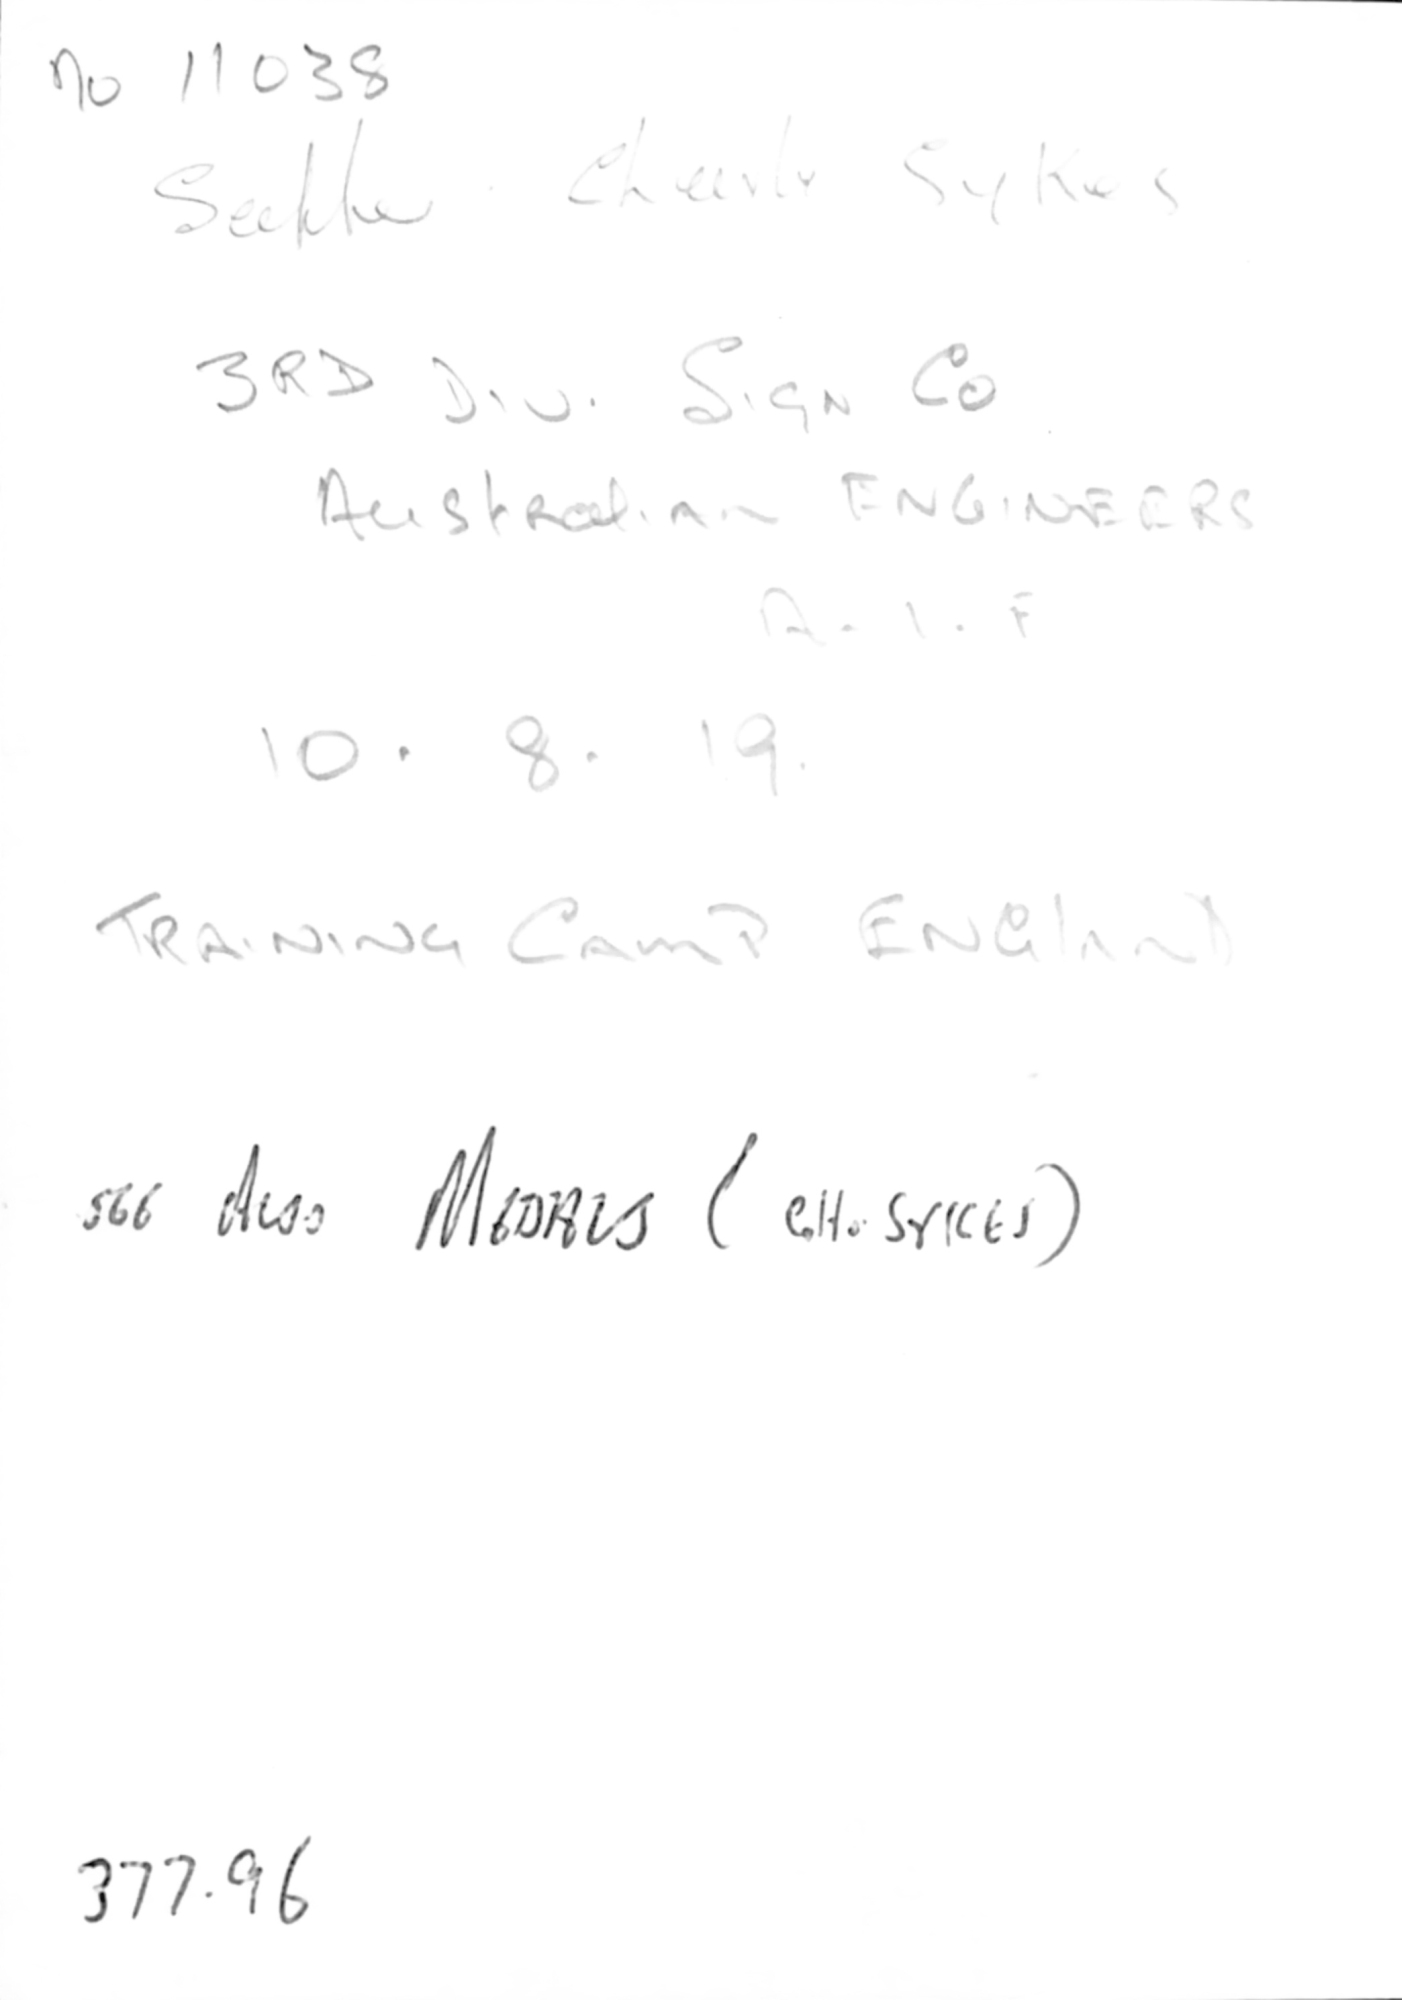 No 11038
Sapper Charles Sykes
3RD Div. Sign Co
Australian ENGINEERS
A.I.F
10. 8. 19.
TRAINING CAMP ENGlAND
SEE ALSO MEDALS (C.H. SYKES)
377.96